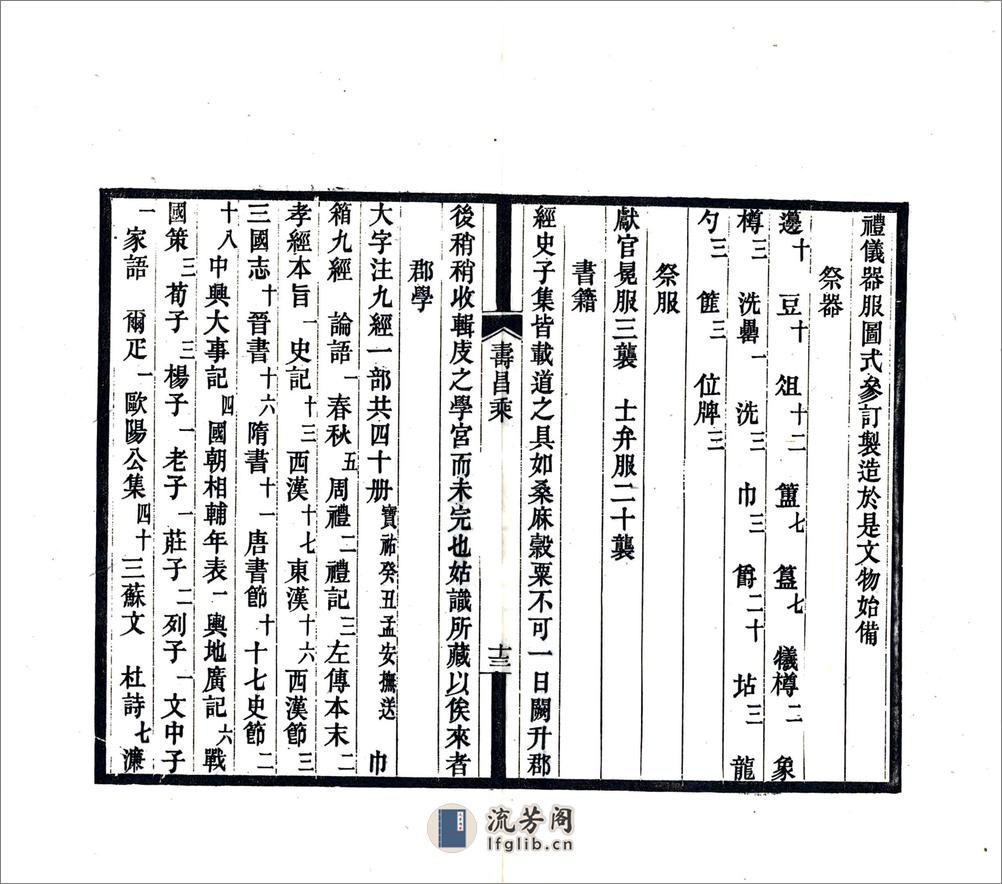 禮儀器服圖式參訂製造於是文物始備
祭器
邊十 豆十 俎十二 簠七 簋七 犧樽二 象
樽三 洗罍一 洗三 巾三 爵二十 坫三 龍
勺三 篚三 位牌三
祭服
獻官冕服三襲 士弁服二十襲
書籍
經史子集皆載道之具如桑麻穀粟不可一日闕升郡
壽昌乘
十三
後稍稍收輯庋之學宮而未完也姑識所藏以俟來者
郡學
大字注九經一部共四十册寶祐癸丑孟安撫送 巾
箱九經 論語一春秋五周禮二禮記三左傳本末二
孝經本旨一史記十三西漢十七東漢十六西漢節三
三國志十晉書十六隋書十一唐書節十十七史節二
十八中興大事記四國朝相輔年表一輿地廣記六戰
國策三荀子三楊子一老子一莊子二列子一文中子
一家語 爾疋一歐陽公集四十三蘇文 杜詩七濂
流芳阁
lfglib.cn